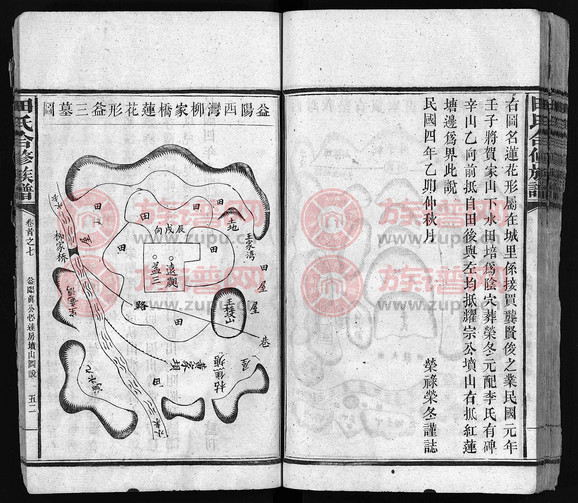 田氏合修族譜
右圖名蓮花形屬在城里係接賀龔賢俊之業民國元年
壬子將賀家山下水田培爲陰穴葬榮冬元配李氏有碑
辛山乙向前抵自田後與左均抵耀宗公墳山右抵紅蓮
塘邊爲界此説
民國四年乙卯仲秋月
榮祿榮冬謹誌
益陽西灣柳家橋蓮花形益三墓圖
田
田
田
田
田
田
土地
王家灣
辰戌向
遠觀
益三
柳家橋
路
田
屋
田
屋
王接山
巷
水來
田氏合修族譜
卷首之七
五二
族譜网
www.zupu.cn
族譜网
www.zupu.cn